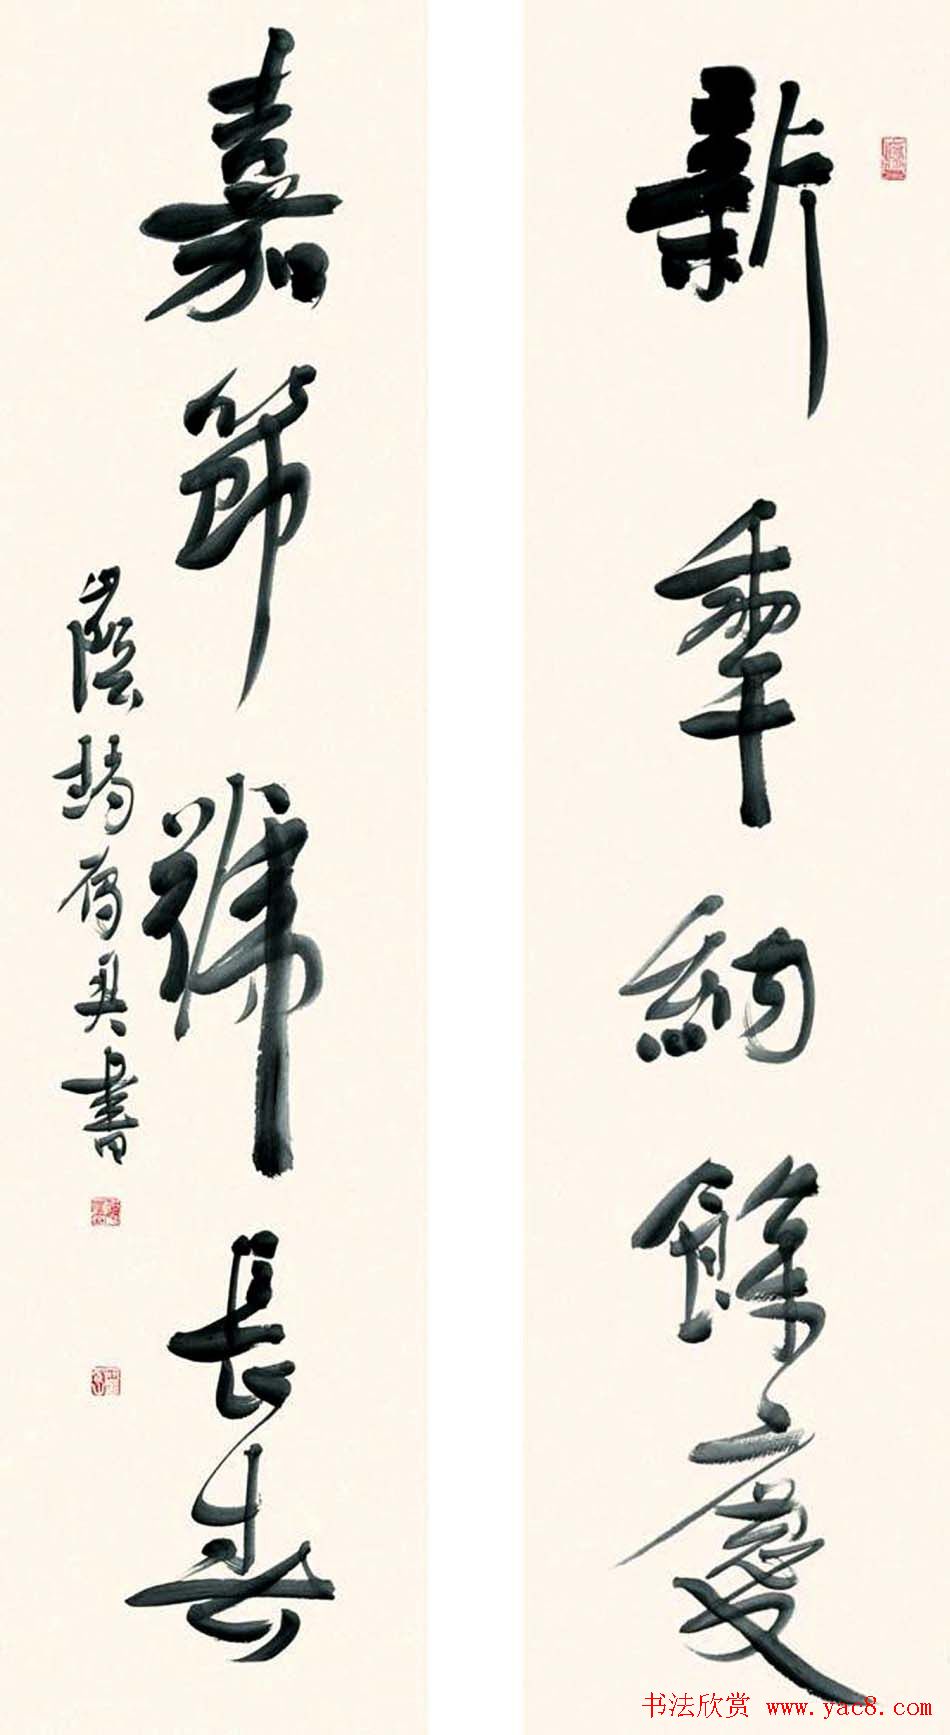 新年納餘慶
嘉節號長春
書
书法欣赏 www.yac8.com